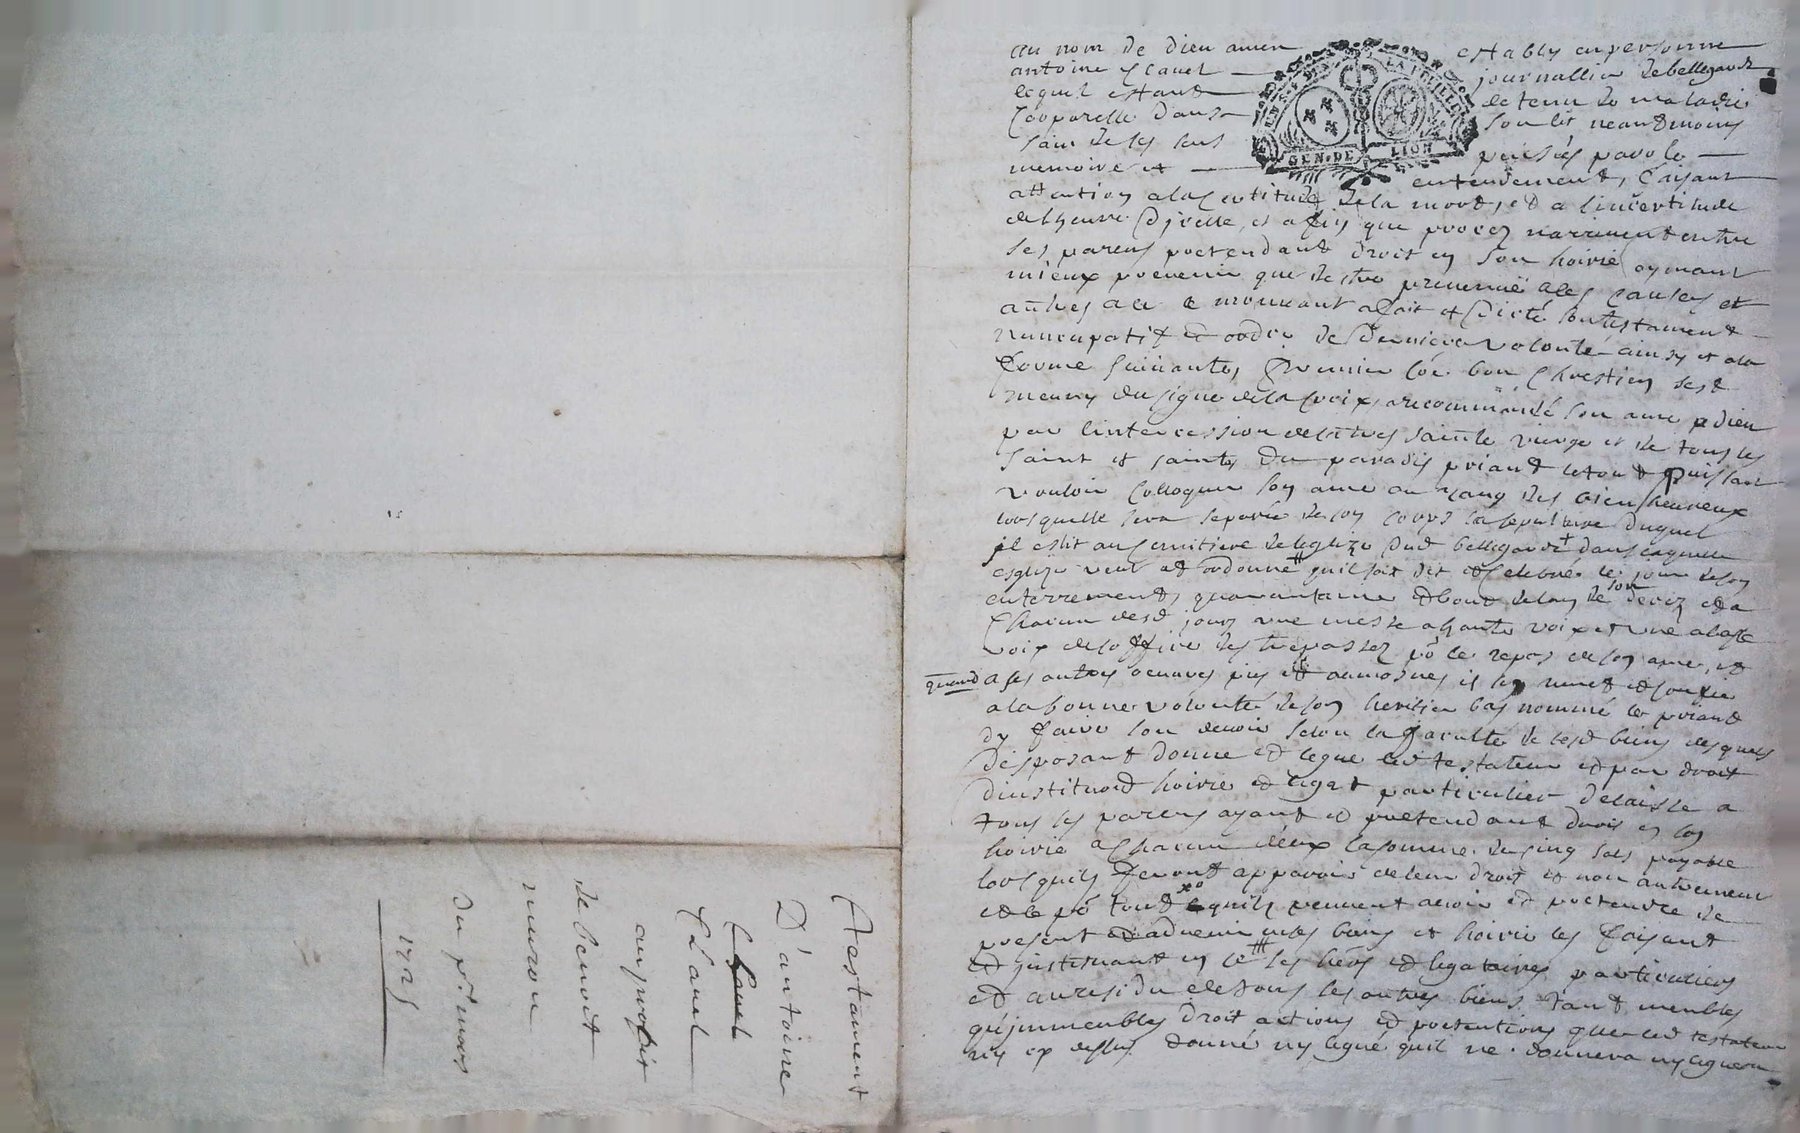 au nom de dieu amen establi en personne
antoine clauel journallier de bellegarde
lequel estant detenu de maladie
Corporelle dans son lit neandmoins
sain de ses sens
memoire et entendement, faisant
attention a la certitude de la mort, et a l'incertitude
de lheure dicelle, et afin que proces narrivent entre
ses parens pretendant droit en son hoirie aymant
mieux prevenir que destre prevenu a ces causes et
autres a ce le mouvant a fait et dicté son testament
nuncupatif et ordre de derniere volonté ainsy et a la
forme suivante, Premier coe bon Chrestien sest
muny du signe de la croix, a recommandé son ame a dieu
par lintercession de la tres sainte vierge et de tous les
saint et saintes du paradis priant le tout Puissant
vouloir colloquer son ame au rang des bien heureux
lors quelle sera separée de son corps la sepulture duquel
il eslit au cemitiere de leglize dud bellegarde dans laquelle
esglize veut et ordonne quil soit dit et celebré le jour de son
enterrement, quarantaine et bout de lan de son deces et a
Chacun desd jours une messe a haute voix et une a basse
voix de loffice des trepassez po le repos de son ame, et
quand a ses autres oeuvres pies et aumosnes il les remet et confie
a la bonne volonté de son heritier bas nommé le priant
dy faire son devoir selon la faculté de sesd biens desquels
disposant donne et legue led testateur et par droit
dinstituon d hoirie et legat particulier delaisse a
tous ses parens ayant et pretendant droit en son
hoirie a chacun deux la somme de cinq sols payable
lors quils feront apparoir de leur droit et non autrement
et ce po tout ce quils peuvent avoir et pretendre de
present et advenir en ses biens et hoirie les faisant
et instituant en ce ses hers et legataires particuliers
et au residu de tous ses autres biens tant meubles
qu'immeubles droit actions et pretentions que led testateur
ny cy dessus donné ny legué quil ne donnera ny leguera
GEN. DE LION
Testament
D'antoine
Clauel
au profit
de benoit
muron
du pr. mars
1725